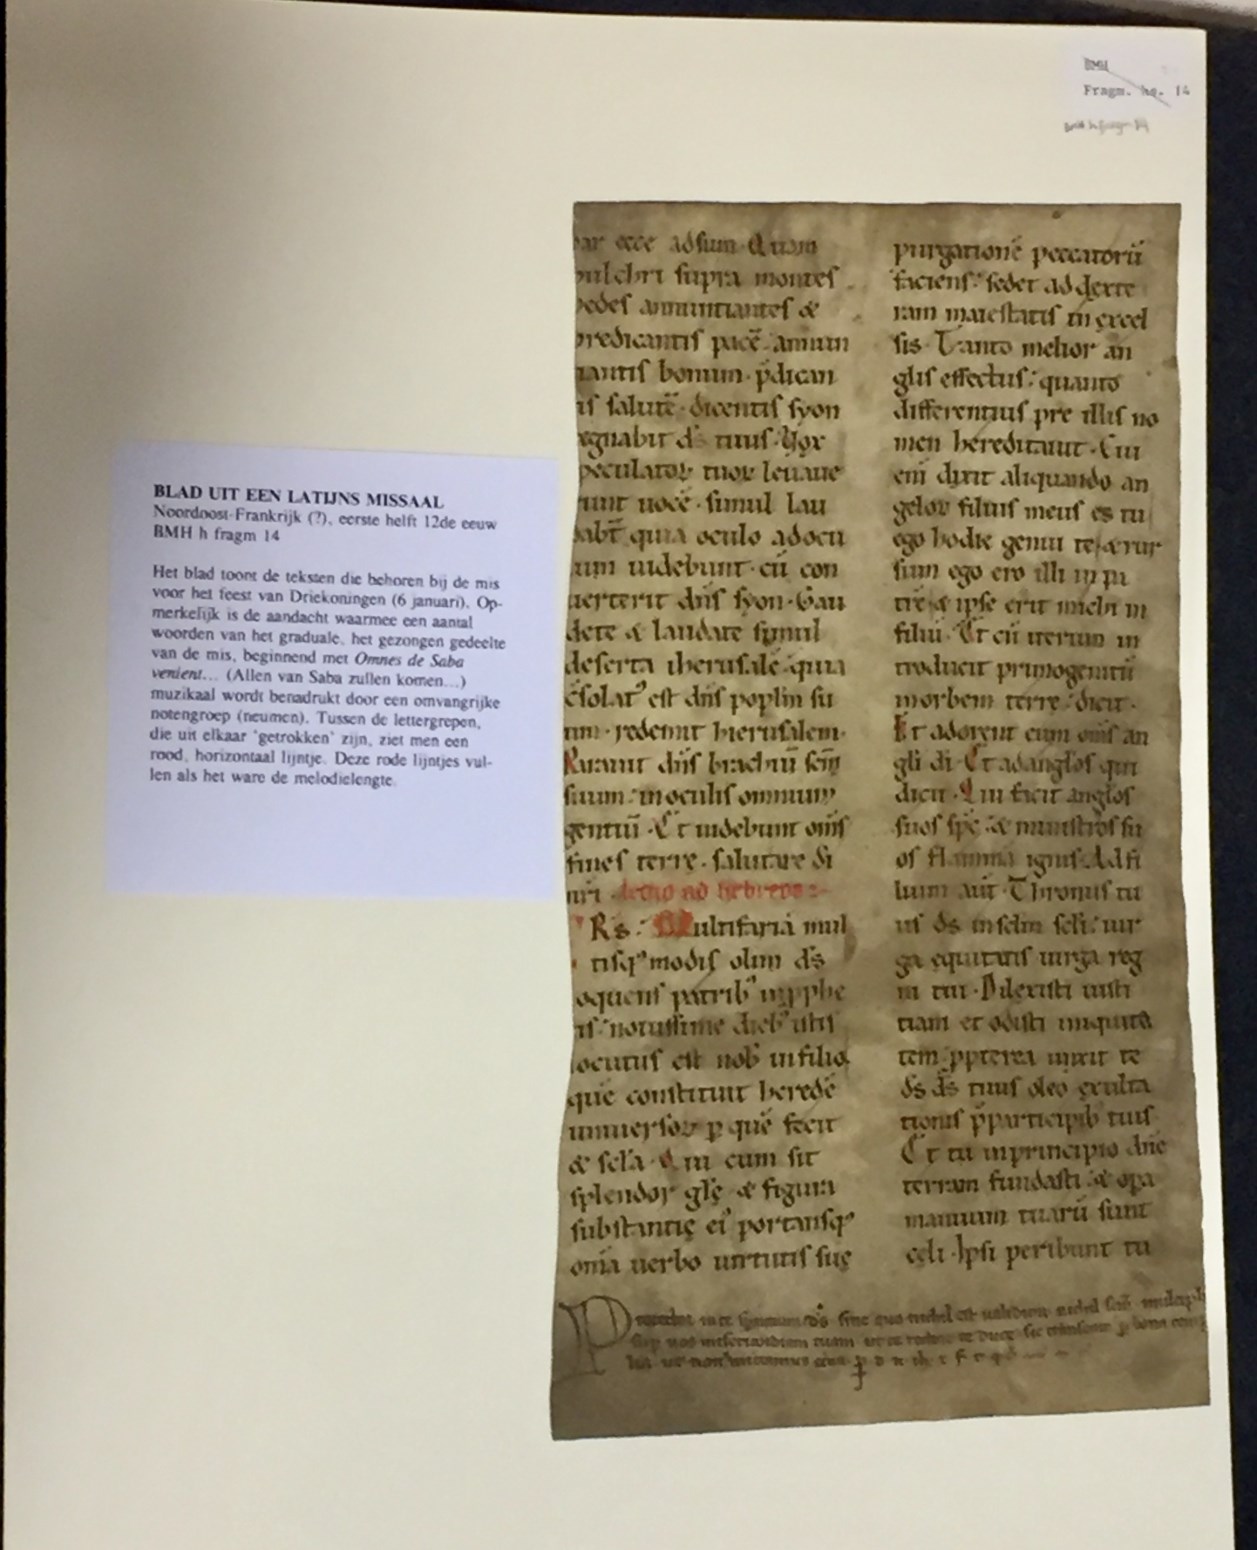 BMH
Fragm. hs. 14
BLAD UIT EEN LATIJNS MISSAAL
Noordoost-Frankrijk (?), eerste helft 12de eeuw
BMH h fragm 14
Het blad toont de teksten die behoren bij de mis
voor het feest van Driekoningen (6 januari). Op-
merkelijk is de aandacht waarmee een aantal
woorden van het graduale, het gezongen gedeelte
van de mis, beginnend met Omnes de Saba
venient... (Allen van Saba zullen komen...)
muzikaal wordt benadrukt door een omvangrijke
notengroep (neumen). Tussen de lettergrepen,
die uit elkaar 'getrokken' zijn, ziet men een
rood, horizontaal lijntje. Deze rode lijntjes vul-
len als het ware de melodielengte.
ecce adsum. Quam
pulchri supra montes
pedes annuntiantes &
predicantis pacē. annun
tiantis bonum. p̄dican
is salutē. dicentis syon
regnabit d̄s tuus. Vox
peculatoꝝ tuoꝝ leuaue
runt uocē. simul lau
dabt̄ quia oculo adocu
lum uidebunt. cū con
uerterit dn̄s syon. Gau
dete & laudate simul
deserta iherusalē. quia
c̄solatꝰ est dn̄s poplm̄ su
um. redemit hierusalem.
Parauit dn̄s brachiū scm̄
suum: in oculis omnium
gentiū. Et uidebunt om̄s
fines terrę. salutare di
nr̄i. lectio ad hebreos:
Rs. Multifariā mul
tisqꝰ modis olim d̄s
loquens patribꝰ in ꝓphe
tis: nouissime diebꝰ istis
locutus est nob̄ in filio
quē constituit heredē
uniuersoꝝ ꝑ quē fecit
& sc̄la. Qui cum sit
splendor glę̄ & figura
substantię eiꝰ portansqꝰ
om̄ia uerbo uirtutis suę
purgationē peccatorū
faciens: sedet ad dexte
ram maiestatis in excel
sis. Tanto melior an
glis effectus: quanto
differentius pre illis no
men hereditauit. Cui
eni dixit aliquando an
geloꝝ filius meus es tu
ego hodie genui te, & rur
sum ego ero illi in pa
trē & ipse erit michi in
filiū. Et cū iterum in
troducit primogenitū
in orbem terrę: dicit.
Et adorent eum om̄s an
gli di. Et ad angl̄os qui
dicit. Qui facit angl̄os
suos sp̄c & ministros su
os flamma ignis. Ad fi
lium aūt. Thronus tu
us d̄s in sc̄lm sc̄li: uir
ga equitatis uirga reg
ni tui. Dilexisti iusti
tiam et odisti iniquita
tem: ꝓpterea unxit te
d̄s d̄s tuus oleo exulta
tionis p̄ participib̄ tuis
Et tu in principio dn̄e
terram fundasti: & opa
manuum tuarū sunt
celi. Ipsi peribunt tu